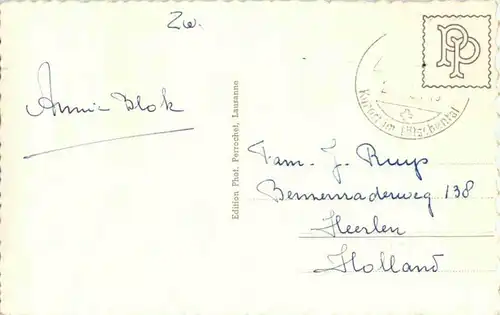 Zw.
Annie Blok
Edition Phot. Perrochet, Lausanne
PP
Kurort im Lötschental
Fam. J. Ruyp
Bennemaderweg 138
Heerlen
Holland